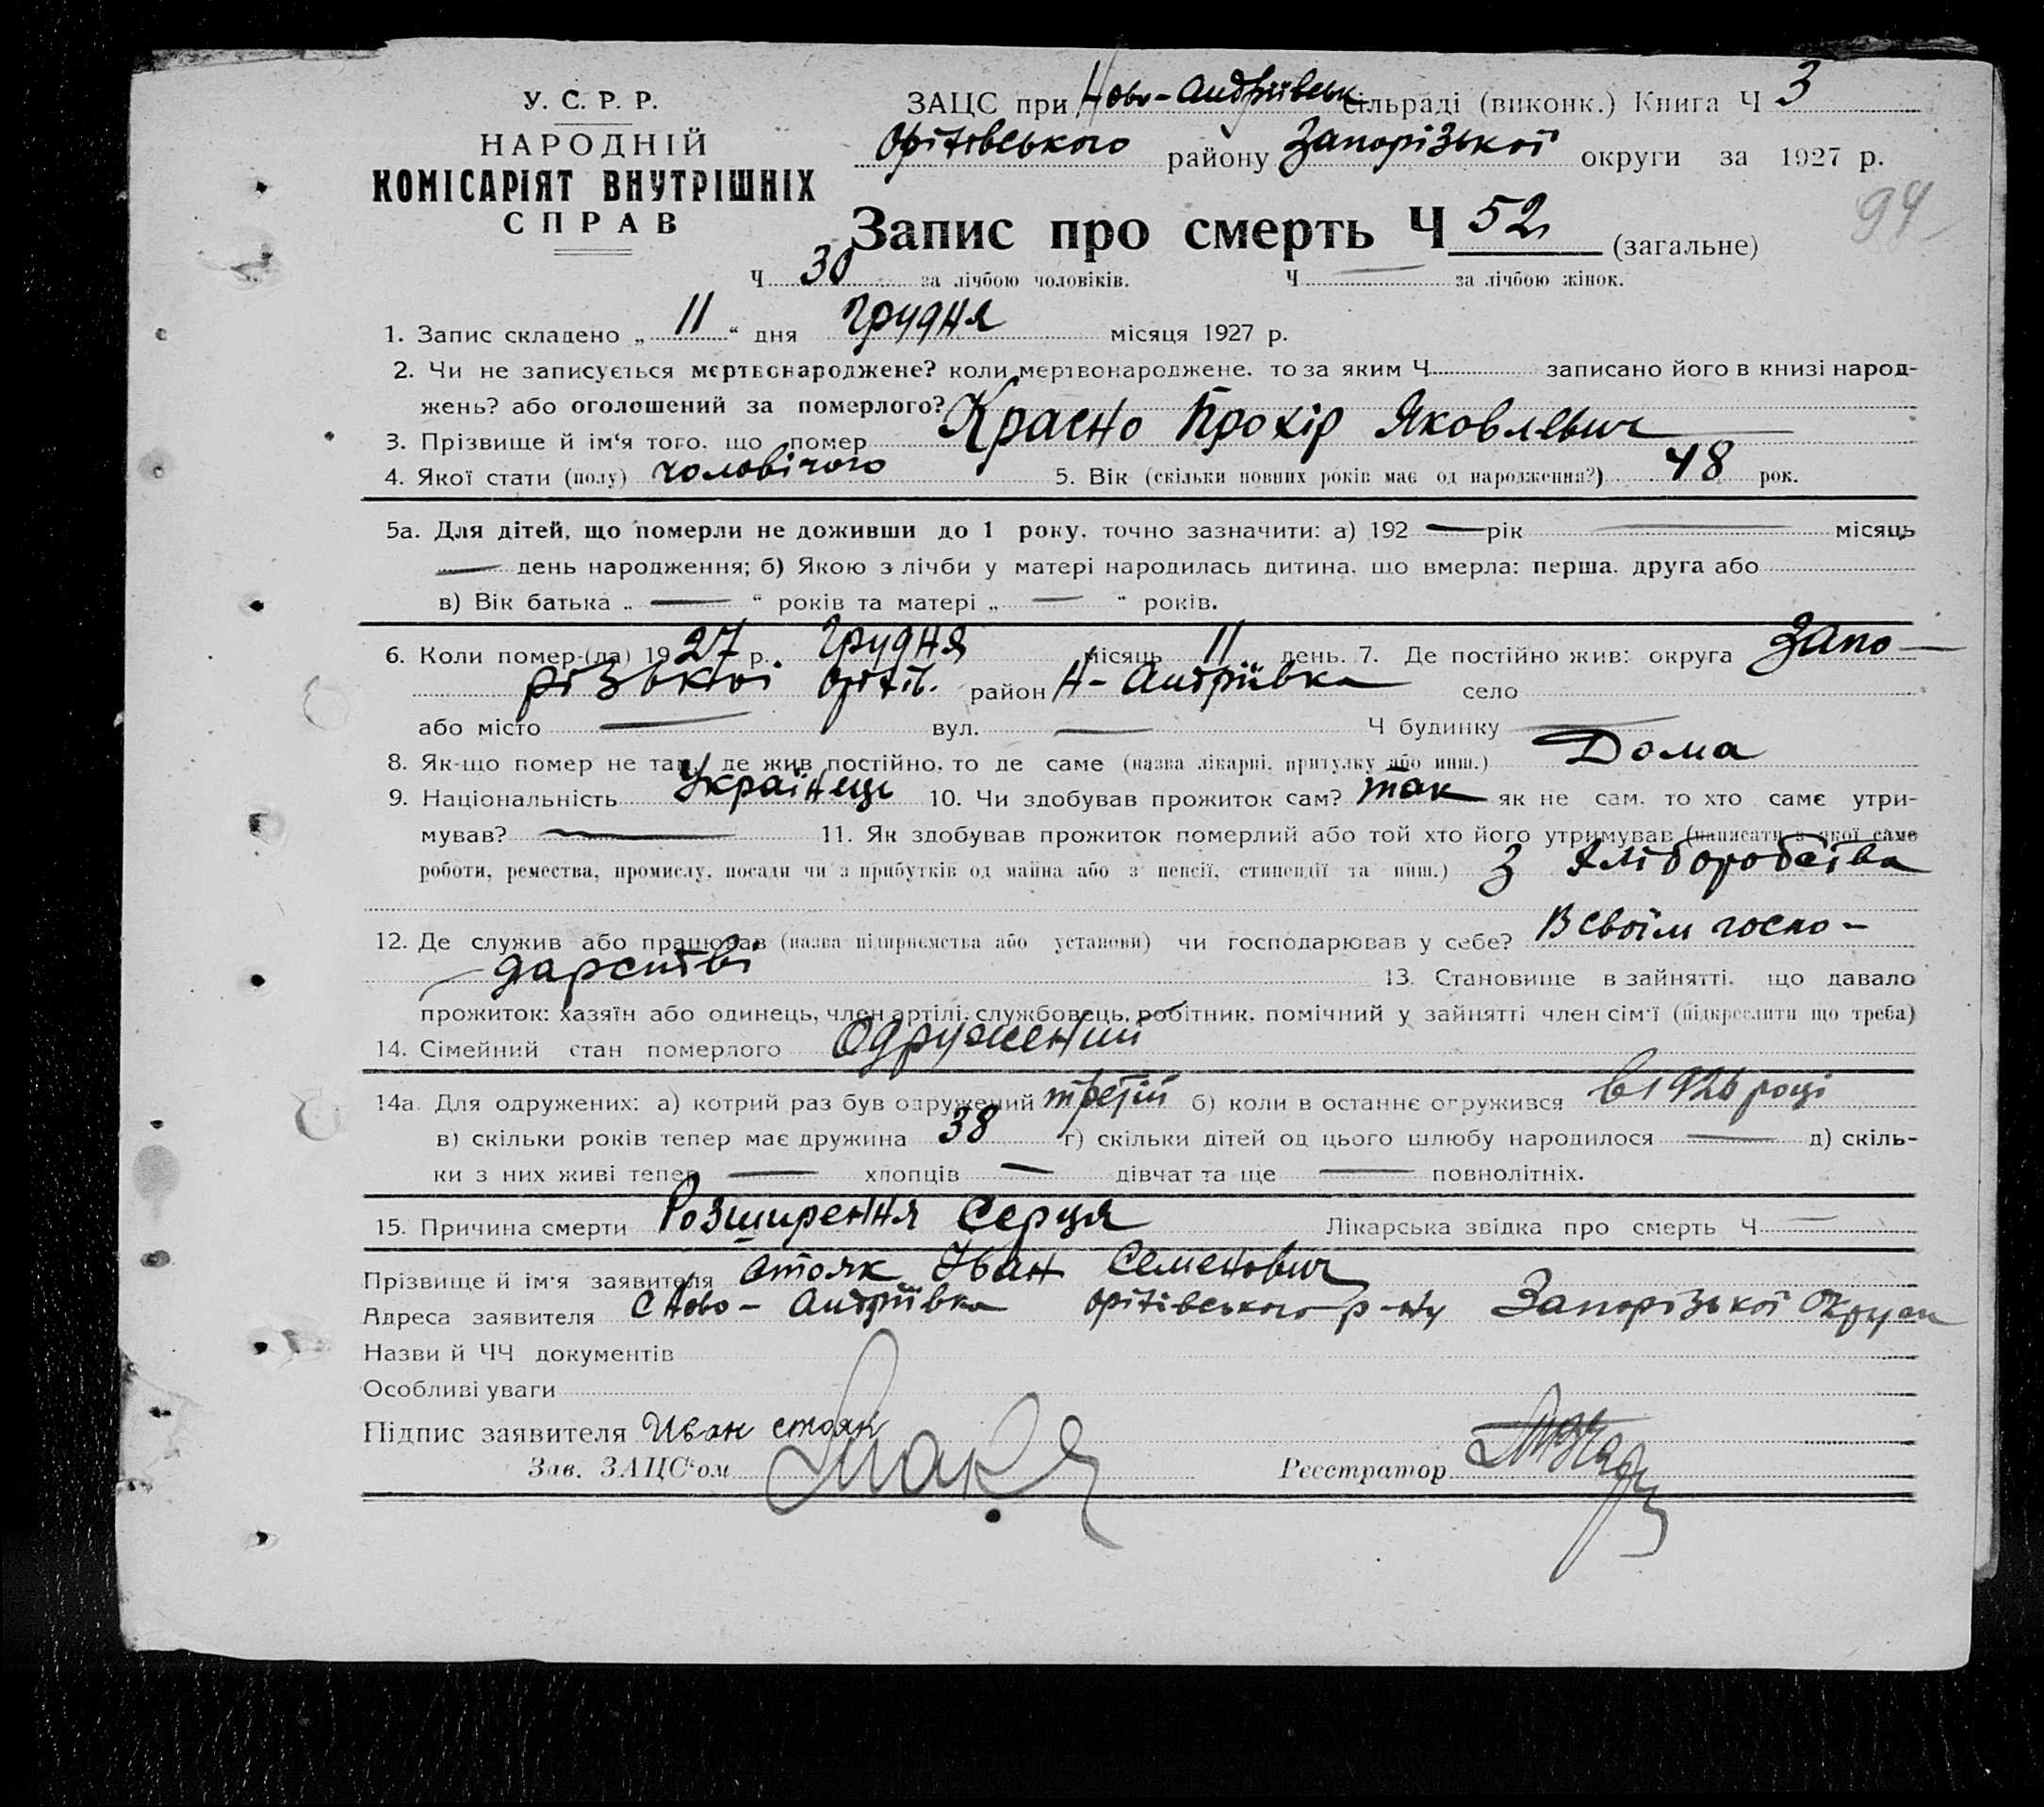 У. С. Р. Р.
НАРОДНІЙ
КОМІСАРІЯТ ВНУТРІШНІХ
СПРАВ
ЗАЦС при Ново-Андріївськ сільраді (виконк.) Книга Ч 3
Оріхівського району Запорізької округи за 1927 р.
94
Запис про смерть Ч 52 (загальне)
Ч 30 за лічбою чоловіків. Ч — за лічбою жінок.
1. Запис складено „ 11 “ дня Грудня місяця 1927 р.
2. Чи не записується мертвонароджене? коли мертвонароджене, то за яким Ч записано його в книзі народ-
жень? або оголошений за померлого?
3. Прізвище й ім'я того, що помер Красно Прохір Яковлевич
4. Якої стати (полу) чоловічого 5. Вік (скільки повних років має од народження?) 48 рок.
5а. Для дітей, що померли не доживши до 1 року, точно зазначити: а) 192 — рік — місяць
— день народження; б) Якою з лічби у матері народилась дитина, що вмерла: перша, друга або
в) Вік батька „ — “ років та матері „ — “ років.
6. Коли помер-(ла) 1927 р. Грудня місяць 11 день. 7. Де постійно жив: округа Запо-
різької Оріхів. район Н-Андріївка село
або місто — вул. — Ч будинку —
8. Як-що помер не там, де жив постійно, то де саме (назва лікарні, притулку або инш.) Дома
9. Національність Українець 10. Чи здобував прожиток сам? так як не сам, то хто саме утри-
мував? — 11. Як здобував прожиток померлий або той хто його утримував (написати з якої саме
роботи, ремества, промислу, посади чи з прибутків од майна або з пенсії, стипендії та инш.) З Хліборобства
12. Де служив або працював (назва підприємства або установи) чи господарював у себе? В своїм госпо-
дарстві 13. Становище в зайнятті, що давало
прожиток: хазяїн або одинець, член артілі, службовець, робітник, помічний у зайнятті член сім'ї (підкреслити що треба)
14. Сімейний стан померлого Одружений
14а. Для одружених: а) котрий раз був одружений третій б) коли в останнє одружився в 1926 році
в) скільки років тепер має дружина 38 г) скільки дітей од цього шлюбу народилося — д) скіль-
ки з них живі тепер — хлопців — дівчат та ще — повнолітніх.
15. Причина смерти Розширення Серця Лікарська звідка про смерть Ч —
Прізвище й ім'я заявителя Стояк Іван Семенович
Адреса заявителя с Ново-Андріївка Оріхівського р-ну Запорізької Округи
Назви й ЧЧ документів
Особливі уваги
Підпис заявителя Иван стояк
Зав. ЗАЦС'ом
Реєстратор